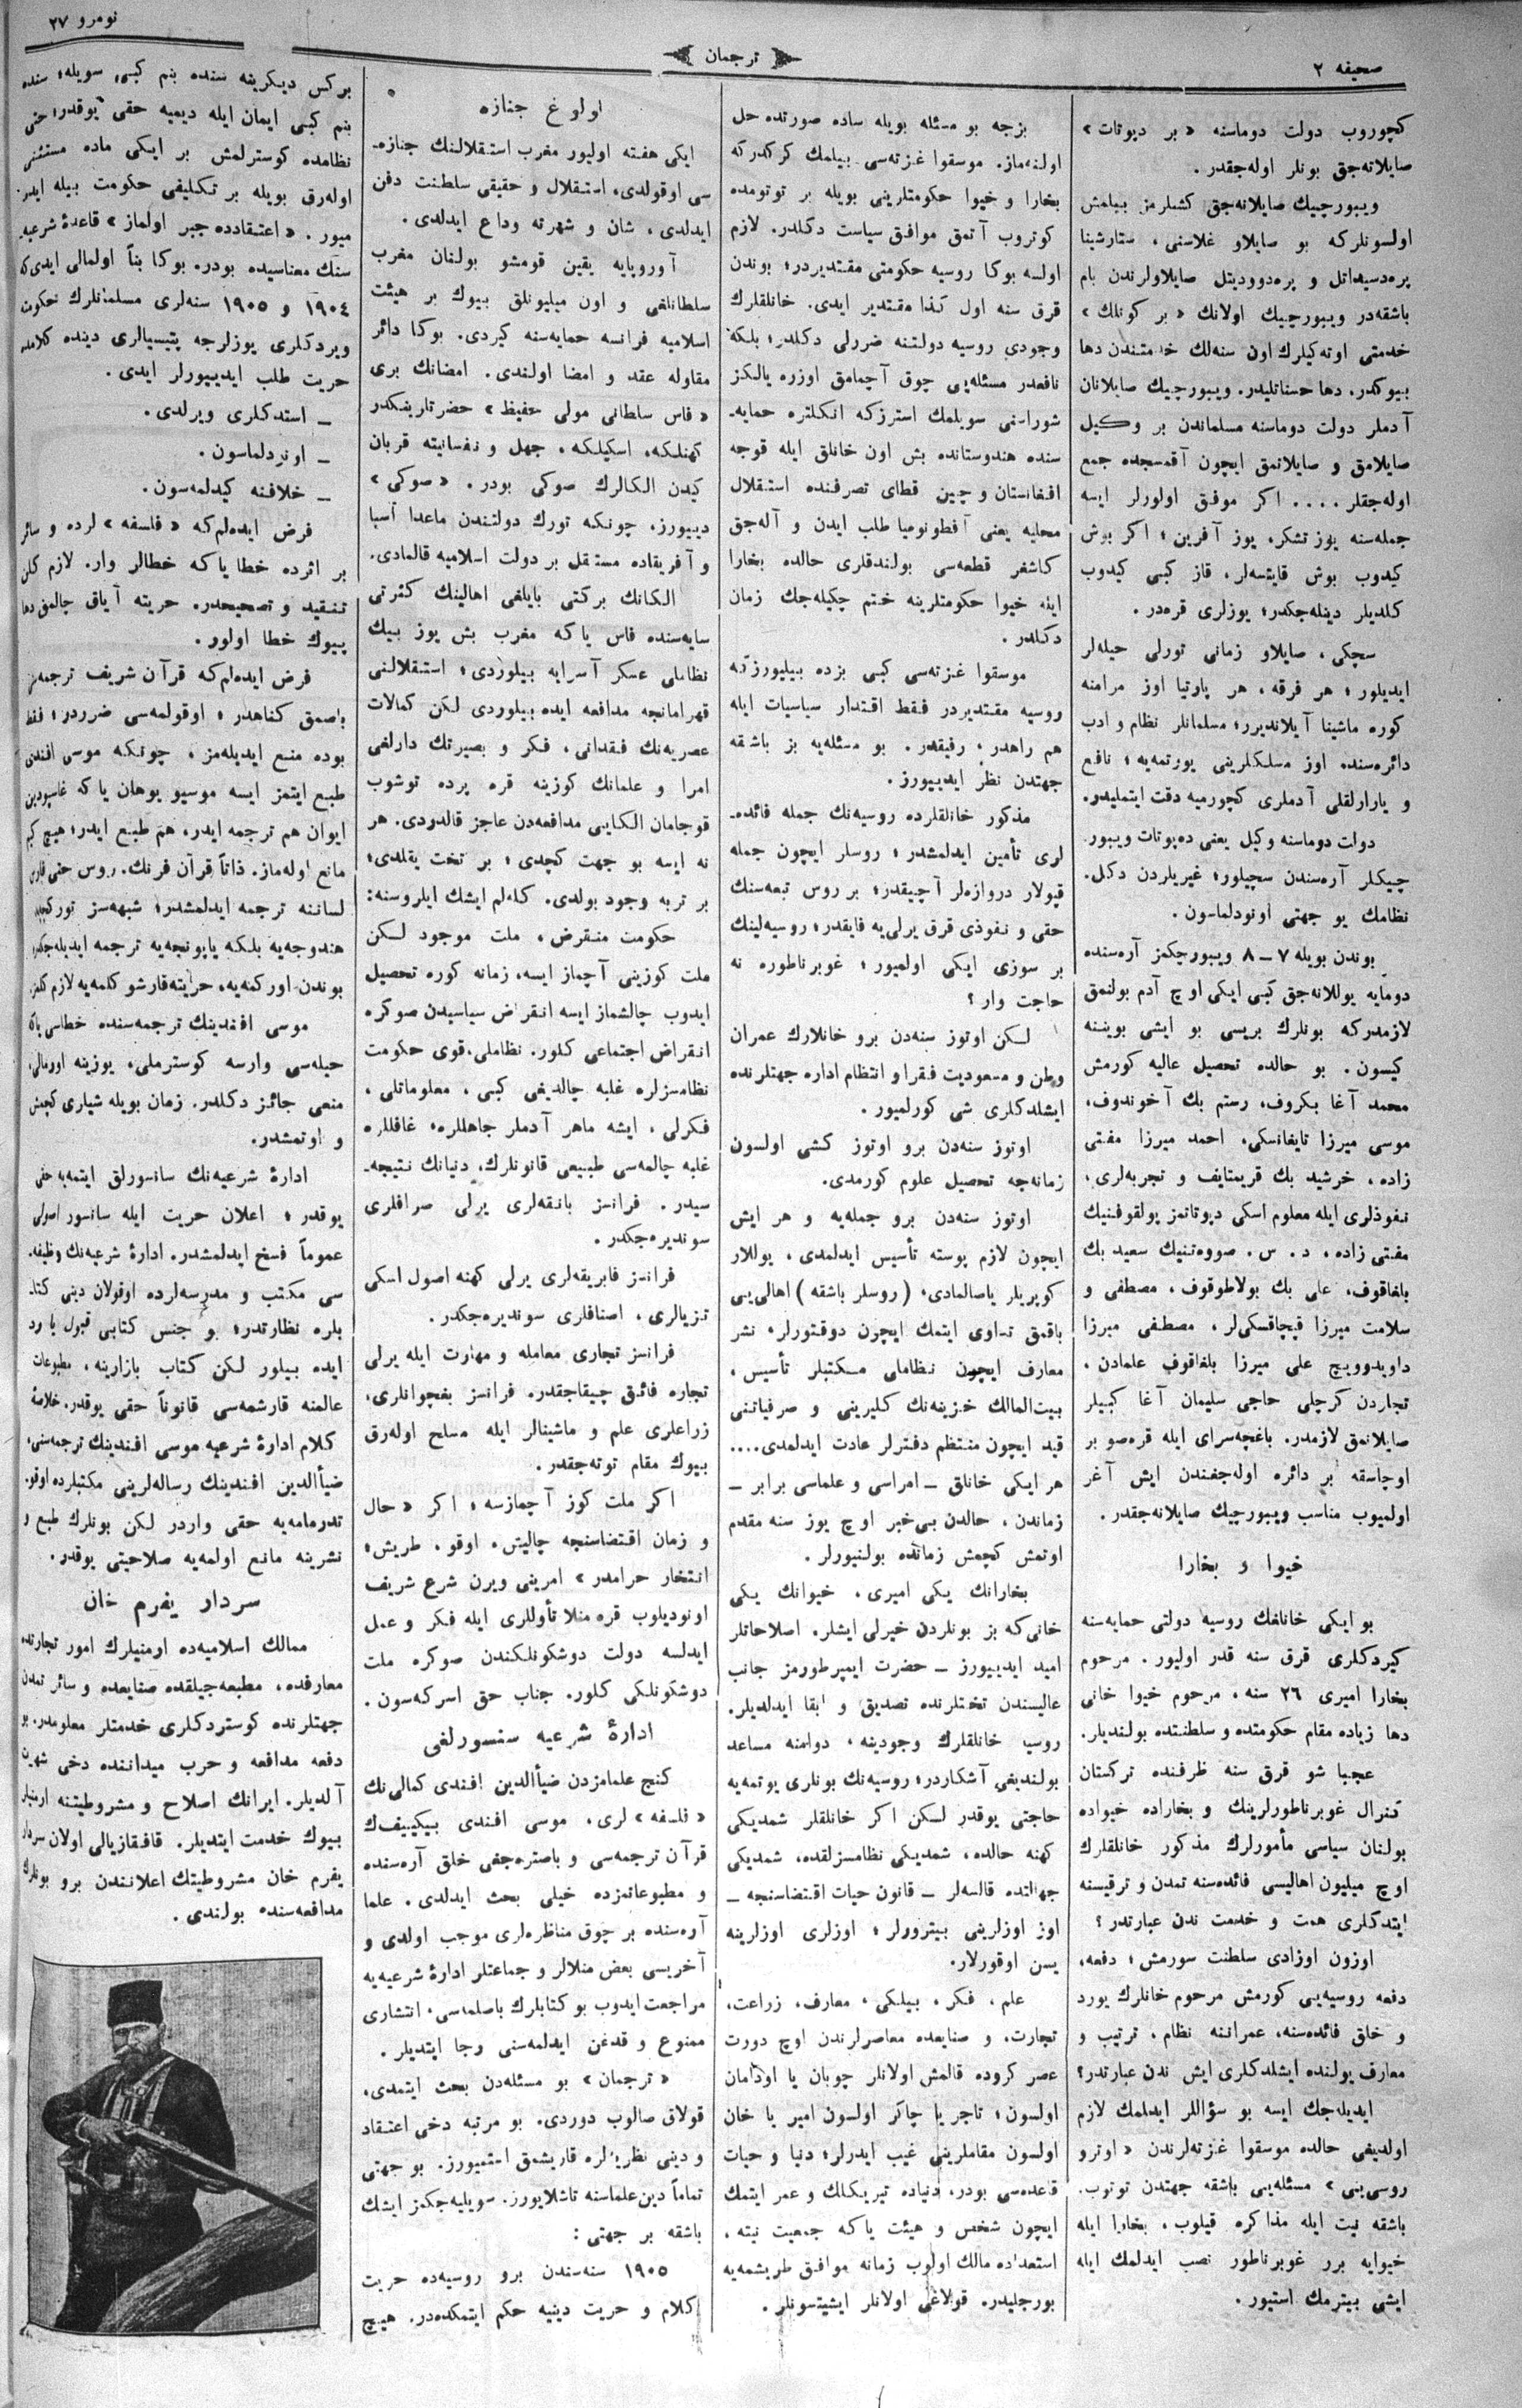 صحیفه ٢
ترجمان
نومرو ٢٧
كچوروب دولت دوماسنه «بر دیوتات»
صایلانه‌جق بونلر اوله‌جقدر.
ویبورچیك صایلانه‌جق كشیلرمز بیلمش
اولسونلركه بو صایلاو غلاسنی، ستارشینا
پره‌دسیداتل و پره‌دوودیتل صایلاولرندن بام
باشقه‌در ویبورچیك اولانك «بر كونلك»
خدمتی اوته‌كیلرك اون سنه‌لك خدمتندن دها
بیوكدر، دها حسناتلیدر. ویبورچیك صایلانان
آدملر دولت دوماسنه مسلماندن بر وكیل
صایلامق و صایلاتمق ایچون آقمسجده جمع
اوله‌جقلر.... اكر موفق اولورلر ایسه
جمله‌سنه یوز تشكر، یوز آفرین؛ اكر بوش
كیدوب بوش قایتسه‌لر، قاز كبی كیدوب
كلدیلر دینله‌جكدر؛ یوزلری قره‌در.
سچكی، صایلاو زمانی تورلی حیله‌لر
ایدیلور؛ هر فرقه، هر پارتیا اوز مرامنه
كوره ماشینا آیلاندیرر؛ مسلمانلر نظام و ادب
دائره‌سنده اوز مسلكلرینی یورتمه‌یه؛ نافع
و یارارلقلی آدملری كچورمیه دقت ایتملیدر.
دولت دوماسنه وكیل یعنی ده‌پوتات ویبور-
چیكلر آره‌سندن سچیلور؛ غیریلردن دكل.
نظامك بو جهتی اونودلماسون.
بوندن بویله ٧—٨ ویبورچكمز آره‌سنده
دومایه یوللانه‌جق كبی ایكی اوچ آدم بولنمق
لازمدركه بونلرك بریسی بو ایشی بویننه
كیسون. بو حالده تحصیل عالیه كورمش
محمد آغا بكروف، رستم بك آخوندوف،
موسی میرزا تایغانسكی، احمد میرزا مفتی
زاده، خرشید بك قریمتایف و تجربه‌لری،
نفوذلری ایله معلوم اسكی دیوتاتمز یولقوفنیك
مفتی زاده، د. س. صووه‌تنیك سعید بك
بلغاقوف، علی بك بولاطوقوف، مصطفی و
سلامت میرزا قپچاقسكی‌لر، مصطفی میرزا
داویدوویچ علی میرزا بلغاقوف علمادن،
تجاردن كرچلی حاجی سلیمان آغا كبیلر
صایلانمق لازمدر. باغچه‌سرای ایله قره‌صو بر
اوچاسقه بر دائره اوله‌جغندن ایش آغر
اولمیوب مناسب ویبورچیك صایلانه‌جقدر.
خیوا و بخارا
بو ایكی خانلغك روسیه دولتی حمایه‌سنه
كیردكلری قرق سنه قدر اولیور. مرحوم
بخارا امیری ٢٦ سنه، مرحوم خیوا خانی
دها زیاده مقام حكومتده و سلطنتده بولندیلر.
عجبا شو قرق سنه ظرفنده تركستان
كنرال غوبرناطورلرینك و بخاراده خیواده
بولنان سیاسی مأمورلرك مذكور خانلقلرك
اوچ میلیون اهالیسی فائده‌سنه تمدن و ترقیسنه
ایتدكلری همت و خدمت ندن عبارتدر؟
اوزون اوزادی سلطنت سورمش؛ دفعه،
دفعه روسیه‌یی كورمش مرحوم خانلرك یورد
و خلق فائده‌سنه، عمراننه نظام، ترتیب و
معارف یولنده ایشلدكلری ایش ندن عبارتدر؟
ایدیله‌جك ایسه بو سؤاللر ایدلمك لازم
اولدیغی حالده موسقوا غزته‌لرندن «اوترو
روسیی» مسئله‌یی باشقه جهتدن توتوب.
باشقه نیت ایله مذاكره قیلوب، بخارا ایله
خیوایه برر غوبرناطور نصب ایدلمك ایله
ایشی بیترمك استیور.
بزجه بو مسئله بویله ساده صورتده حل
اولنه‌ماز. موسقوا غزته‌سی بیلمك كركدركه
بخارا و خیوا حكومتلرینی بویله بر توتومده
كوتروب آتمق موافق سیاست دكلدر. لازم
اولسه بوكا روسیه حكومتی مقتدیردر؛ بوندن
قرق سنه اول كذا مقتدیر ایدی. خانلقلرك
وجودی روسیه دولتنه ضررلی دكلدر؛ بلكه
نافعدر مسئله‌یی چوق آچمامق اوزره یالكز
شوراسنی سویلمك استرزكه انكلتره حمایه-
سنده هندوستانده بش اون خانلق ایله قوجه
افغانستان و چین قطای تصرفنده استقلال
محلیه یعنی آفطونومیا طلب ایدن و آله‌جق
كاشغر قطعه‌سی بولندقلری حالده بخارا
ایله خیوا حكومتلرینه ختم چكیله‌جك زمان
دكلدر.
موسقوا غزته‌سی كبی بزده بیلیورزكه
روسیه مقتدیردر فقط اقتدار سیاسیات ایله
هم راهدر، رفیقدر. بو مسئله‌یه بز باشقه
جهتدن نظر ایدییورز.
مذكور خانلقلرده روسیه‌نك جمله فائده-
لری تأمین ایدلمشدر؛ روسلر ایچون جمله
قپولار دروازه‌لر آچیقدر؛ بر روس تبعه‌سنك
حقی و نفوذی قرق یرلی‌یه فایقدر؛ روسیه‌لینك
بر سوزی ایكی اولمیور؛ غوبرناطوره نه
حاجت وار؟
لكن اوتوز سنه‌دن برو خانلارك عمران
وطن و مسعودیت فقرا و انتظام اداره جهتلرنده
ایشلدكلری شی كورلمیور.
اوتوز سنه‌دن برو اوتوز كشی اولسون
زمانه‌جه تحصیل علوم كورمدی.
اوتوز سنه‌دن برو جمله‌یه و هر ایش
ایچون لازم پوسته تأسیس ایدلمدی، یوللار
كوپریلر یاصالمادی، (روسلر باشقه) اهالی‌یی
باقمق تداوی ایتمك ایچون دوقتورلر، نشر
معارف ایچون نظاملی مكتبلر تأسیس،
بیت‌المالك خزینه‌نك كلیرینی و صرفیاتنی
قید ایچون منتظم دفترلر عادت ایدلمدی....
هر ایكی خانلق — امراسی و علماسی برابر —
زماندن، حالدن بی‌خبر اوچ یوز سنه مقدم
اوتمش كچمش زمانده بولنیورلر.
بخارانك یكی امیری، خیوانك یكی
خانی‌كه بز بونلردن خیرلی ایشلر. اصلاحاتلر
امید ایدییورز — حضرت ایمپرطورمز جانب
عالیسندن تختلرنده تصدیق و ابقا ایدلدیلر.
روسیه خانلقلرك وجودینه، دوامنه مساعد
بولندیغی آشكاردر؛ روسیه‌نك بونلری یوتمه‌یه
حاجتی یوقدر لكن اكر خانلقلر شمدیكی
كهنه حالده، شمدیكی نظامسزلقده، شمدیكی
جهالتده قالسه‌لر — قانون حیات اقتضاسنجه —
اوز اوزلرینی بیترورلر؛ اوزلری اوزلرینه
یسن اوقورلار.
علم، فكر، بیلكی، معارف، زراعت،
تجارت، و صنایعده معاصرلرندن اوچ دورت
عصر كروده قالمش اولانلر چوبان یا اودامان
اولسون؛ تاجر یا چاكر اولسون امیر یا خان
اولسون مقاملرینی غیب ایدرلر؛ دنیا و حیات
قاعده‌سی بودر، دنیاده تیریكلك و عمر ایتمك
ایچون شخص و هیئت یاكه جمعیت نیته،
استعداده مالك اولوب زمانه موافق طریشمه‌یه
بورجلیدر. قولاغی اولانلر ایشیتسونلر.
اولوغ جنازه
ایكی هفته اولیور مغرب استقلالنك جنازه-
سی اوقولدی، استقلال و حقیقی سلطنت دفن
ایدلدی، شان و شهرته وداع ایدلدی.
آوروپایه یقین قومشو بولنان مغرب
سلطانلغی و اون میلیونلق بیوك بر هیئت
اسلامیه فرانسه حمایه‌سنه كیردی. بوكا دائر
مقاوله عقد و امضا اولندی. امضانك بری
«فاس سلطانی مولی حفیظ» حضرتلرینكدر
كهنلكه، اسكیلكه، جهل و نفسانیته قربان
كیدن الكالرك صوكی بودر. «صوكی»
دییورز، چونكه تورك دولتندن ماعدا آسیا
و آفریقاده مستقل بر دولت اسلامیه قالمادی.
الكانك بركتی بایلغی اهالینك كثرتی
سایه‌سنده فاس یاكه مغرب بش یوز بیك
نظاملی عسكر آسرایه بیلوردی؛ استقلالنی
قهرامانجه مدافعه ایده بیلوردی لكن كمالات
عصریه‌نك فقدانی، فكر و بصیرتك دارلغی
امرا و علمانك كوزینه قره پرده توشوب
قوجامان الكایی مدافعه‌دن عاجز قالدردی. هر
نه ایسه بو جهت كچدی؛ بر تخت یقلدی؛
بر تربه وجود بولدی. كله‌لم ایشك ایلروسنه:
حكومت منقرض، ملت موجود لكن
ملت كوزینی آچماز ایسه، زمانه كوره تحصیل
ایدوب چالشماز ایسه انقراض سیاسیدن صوكره
انقراض اجتماعی كلور. نظاملی، قوی حكومت
نظامسزلره غلبه چالدیغی كبی، معلوماتلی،
فكرلی، ایشه ماهر آدملر جاهللره، غافللره
غلبه چالمه‌سی طبیعی قانونلرك، دنیانك نتیجه-
سیدر. فرانسز بانقه‌لری یرلی صرافلری
سوندیره‌جكدر.
فرانسز فابریقه‌لری یرلی كهنه اصول اسكی
تزیالری، اصنافلری سوندیره‌جكدر.
فرانسز تجاری معامله و مهارت ایله یرلی
تجاره فائق چیقاجقدر. فرانسز بغچوانلری،
زراعلری علم و ماشینالر ایله مسلح اوله‌رق
بیوك مقام توته‌جقدر.
اكر ملت كوز آچمازسه؛ اكر «حال
و زمان اقتضاسنجه چالیش، اوقو، طریش؛
انتخار حرامدر» امرینی ویرن شرع شریف
اونودیلوب قره منلا تأوللری ایله فكر و عمل
ایدلسه دولت دوشكونلكندن صوكره ملت
دوشكونلكی كلور. جناب حق اسركه‌سون.
ادارۀ شرعیه سنسورلغی
كنج علمامزدن ضیأالدین افندی كمالی‌نك
«فلسفه» لری، موسی افندی بیكییف‌ك
قرآن ترجمه‌سی و باصدره‌جغی خلق آره‌سنده
و مطبوعاتمزده خیلی بحث ایدلدی. علما
آره‌سنده بر چوق مناظره‌لری موجب اولدی و
آخریسی بعض منلالر و جماعتلر ادارۀ شرعیه‌یه
مراجعت ایدوب بو كتابلرك باصلمه‌سی، انتشاری
ممنوع و قدغن ایدلمه‌سنی رجا ایتدیلر.
«ترجمان» بو مسئله‌دن بحث ایتمدی،
قولاق صالوب دوردی. بو مرتبه دخی اعتقاد
و دینی نظریه‌لره قاریشمق استمیورز. بو جهتی
تماماً دین علماسنه تاشلایورز. سویلیه‌جكمز ایشك
باشقه بر جهتی:
١٩٠٥ سنه‌سندن برو روسیه‌ده حریت
كلام و حریت دینیه حكم ایتمكده‌در. هیچ
بركس دیكرینه سنده بنم كبی، سویله؛ سنده
بنم كبی ایمان ایله دیمیه حقی یوقدر؛ حتی
نظامده كوسترلمش بر ایكی ماده مستثنی
اوله‌رق بویله بر تكلیفی حكومت بیله ایده-
میور. «اعتقادده جبر اولماز» قاعدۀ شرعیه-
سنك معناسیده بودر. بوكا بنأً اولمالی ایدی‌كه
١٩٠٤ و ١٩٠٥ سنه‌لری مسلمانلرك حكومته
ویردكلری یوزلرجه پتیسیالری دینده كلامده
حریت طلب ایدییورلر ایدی.
— استدكلری ویرلدی.
— اوندلماسون.
— خلافنه كیدلمه‌سون.
فرض ایده‌لم‌كه «فلسفه» لرده و سائر
بر اثرده خطا یاكه خطالر وار. لازم كلن
تنقید و تصحیحدر. حریته آیاق چالمق دها
بیوك خطا اولور.
فرض ایده‌لم‌كه قرآن شریف ترجمه‌سی
باصمق كناهدر؛ اوقولمه‌سی ضرردر؛ فقط
بوده منع ایدیله‌مز، چونكه موسی افندی
طبع ایتمز ایسه موسیو یوهان یاكه غاسپودین
ایوان هم ترجمه ایدر، هم طبع ایدر؛ هیچ كیم
مانع اوله‌ماز. ذاتاً قرآن فرنك، روس حتی فارسی
لساننه ترجمه ایدلمشدر؛ شبهه‌سز توركچه‌یه
هندوجه‌یه بلكه یاپونجه‌یه ترجمه ایدیله‌جكدر
بوندن اوركمه‌یه، حریته قارشو كلمه‌یه لازم كلمز.
موسی افندینك ترجمه‌سنده خطاسی یاكه
حیله‌سی وارسه كوسترملی، یوزینه اورمالی،
منعی جائز دكلدر. زمان بویله شیلری كچمش
و اوتمشدر.
ادارۀ شرعیه‌نك سانسورلق ایتمه‌یه حقی
یوقدر؛ اعلان حریت ایله سانسور اصولی
عموماً فسخ ایدلمشدر. ادارۀ شرعیه‌نك وظیفه-
سی مكتب و مدرسه‌لرده اوقولان دینی كتا-
بلره نظارتدر؛ بو جنس كتابی قبول یا رد
ایده بیلور لكن كتاب بازارینه، مطبوعات
عالمنه قارشمه‌سی قانوناً حقی یوقدر. خلاصۀ
كلام ادارۀ شرعیه موسی افندینك ترجمه‌سنی،
ضیأالدین افندینك رساله‌لرینی مكتبلرده اوقو-
تدرمامه‌یه حقی واردر لكن بونلرك طبع و
نشرینه مانع اولمه‌یه صلاحیتی یوقدر.
سردار یفرم خان
ممالك اسلامیه‌ده ارمنیلرك امور تجارتده
معارفده، مطبعه‌جیلقده صنایعده و سائر تمدن
جهتلرنده كوستردكلری خدمتلر معلومدر. بو
دفعه مدافعه و حرب میداننده دخی شهرت
آلدیلر. ایرانك اصلاح و مشروطیتنه ارمنیلر
بیوك خدمت ایتدیلر. قافقازیالی اولان سردار
یفرم خان مشروطیتك اعلانندن برو بونلرك
مدافعه‌سنده بولندی.